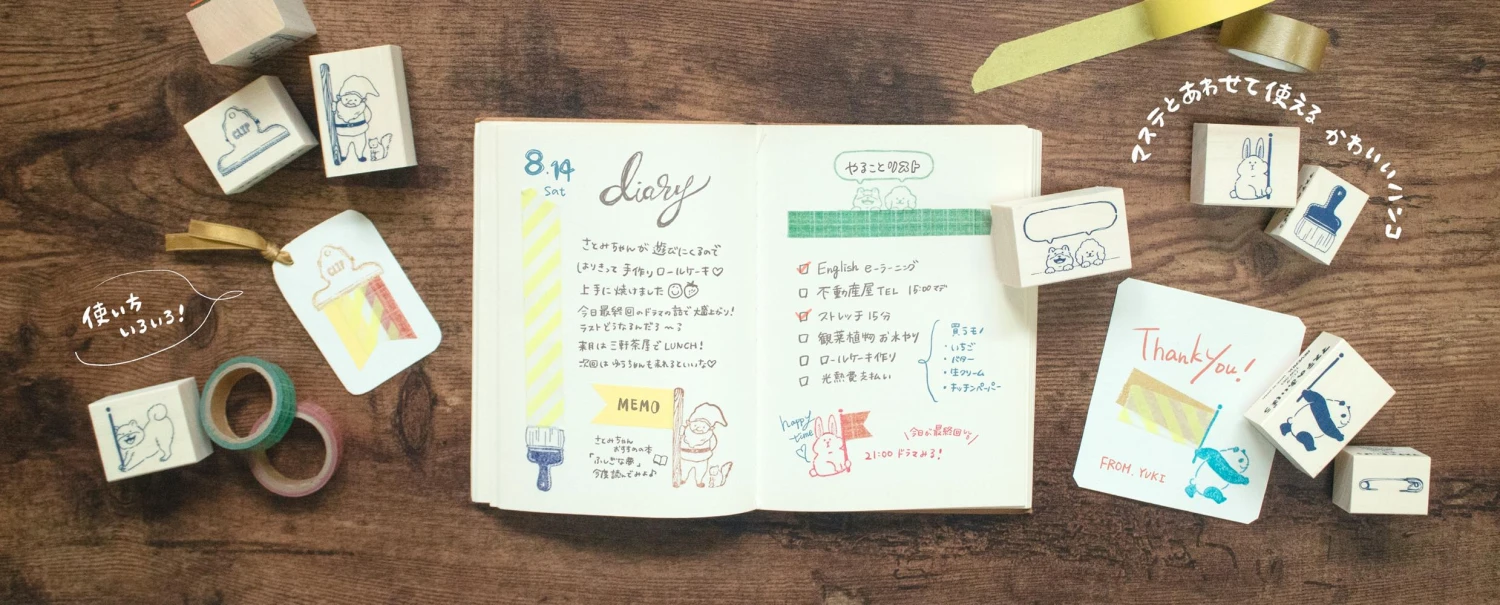 CLIP
使いち
いろいろ!
CLIP
8.14
Sat
diary
さとみちゃんが遊びにくるので
はりきって手作りロールケーキ♡
上手に焼けました
今日最終回のドラマの話で大盛上がり!
ラストどうなるんだろ〜〜?
来月は三軒茶屋でLUNCH!
次回はゆうちゃんも来れるといいな♡
MEMO
さとみちゃん
おすすめの本
「ふしぎな夢」
今度読んでみよ♪
やることリスト
English e-ラーニング
不動産屋TEL 15:00マデ
ストレッチ15分
観葉植物お水やり
ロールケーキ作り
光熱費支払い
買うモノ
・いちご
・バター
・生クリーム
・キッチンペーパー
happy
time
今日が最終回
21:00 ドラマみる!
マステとあわせて使える かわいいハンコ
Thank you!
FROM. YUKI